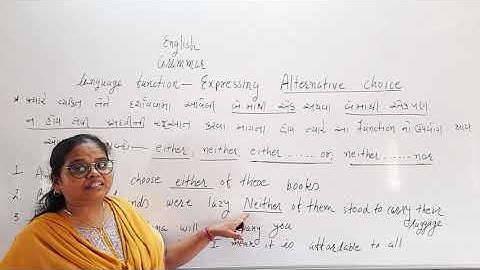 English
Grammar
Language function — Expressing Alternative choice
* જ્યારે વ્યક્તિ તેને દર્શાવવામાં આવેલી બે માંથી એક અથવા બે માંથી એકપણ
ન હોય તેવી પસંદગીની રજૂઆત કરવા માગતા હોય ત્યારે આ function નો ઉપયોગ થાય
either, neither either ...... or, neither ...... nor
1 choose either of these books
2 were lazy Neither of them stood to carry their
luggage
3 will you
I mean it is affordable to all